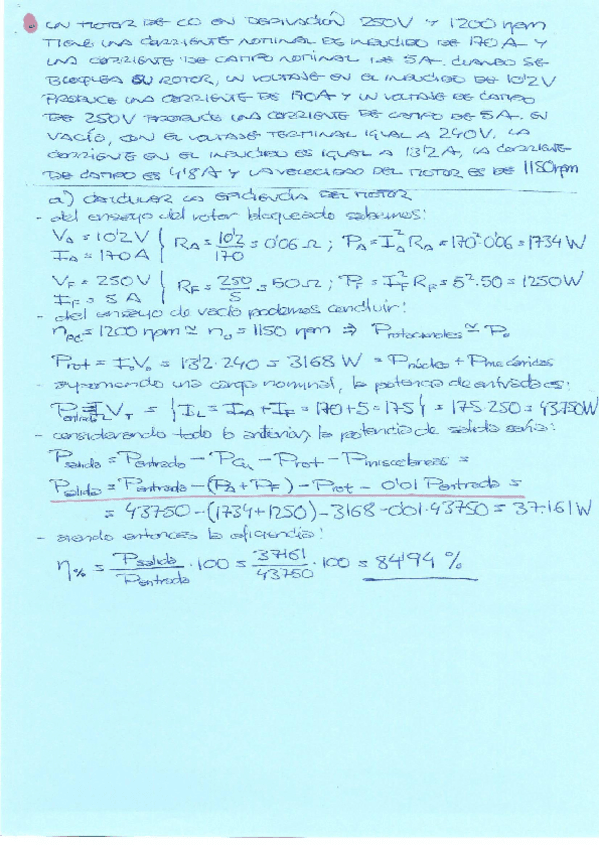 UN MOTOR DE CC EN DERIVACIÓN 250V Y 1200 rpm
TIENE UNA CORRIENTE NOMINAL DE INDUCIDO DE 170 A Y
UNA CORRIENTE DE CAMPO NOMINAL DE 5A. CUANDO SE
BLOQUEA SU ROTOR, UN VOLTAJE EN EL INDUCIDO DE 10'2V
PRODUCE UNA CORRIENTE DE 170A Y UN VOLTAJE DE CAMPO
DE 250V PRODUCE UNA CORRIENTE DE CAMPO DE 5A. EN
VACÍO, CON EL VOLTAJE TERMINAL IGUAL A 240V. LA
CORRIENTE EN EL INDUCIDO ES IGUAL A 13'2A, LA CORRIENTE
DE CAMPO ES 4'8A Y LA VELOCIDAD DEL MOTOR ES DE 1150rpm
a) CALCULAR LA EFICIENCIA DEL MOTOR
- del ensayo del rotor bloqueado sabemos:
V_A = 10'2V } R_A = 10'2/170 = 0'06 Ω ; P_A = I_A² R_A = 170²·0'06 = 1734 W
I_A = 170A
V_F = 250V } R_F = 250/5 = 50 Ω ; P_F = I_F² R_F = 5²·50 = 1250W
I_F = 5 A
- del ensayo de vacío podemos concluir:
n_PC = 1200 rpm ≃ n_0 = 1150 rpm ⇒ P_rotacionales ≃ P_0
P_rot = I_0 V_0 = 13'2·240 = 3168 W = P_núcleo + P_mecánicas
- suponiendo una carga nominal, la potencia de entrada es:
P_entrada = I_L V_T = { I_L = I_A + I_F = 170 + 5 = 175 } = 175·250 = 43750W
- considerando todo lo anterior, la potencia de salida sería:
P_salida = P_entrada - P_Cu - P_rot - P_misceláneas =
P_salida = P_entrada - (P_A + P_F) - P_rot - 0'01 P_entrada =
= 43750 - (1734 + 1250) - 3168 - 0'01·43750 = 37.161 W
- siendo entonces la eficiencia:
η% = P_salida/P_entrada · 100 = 37161/43750 · 100 = 84'94 %